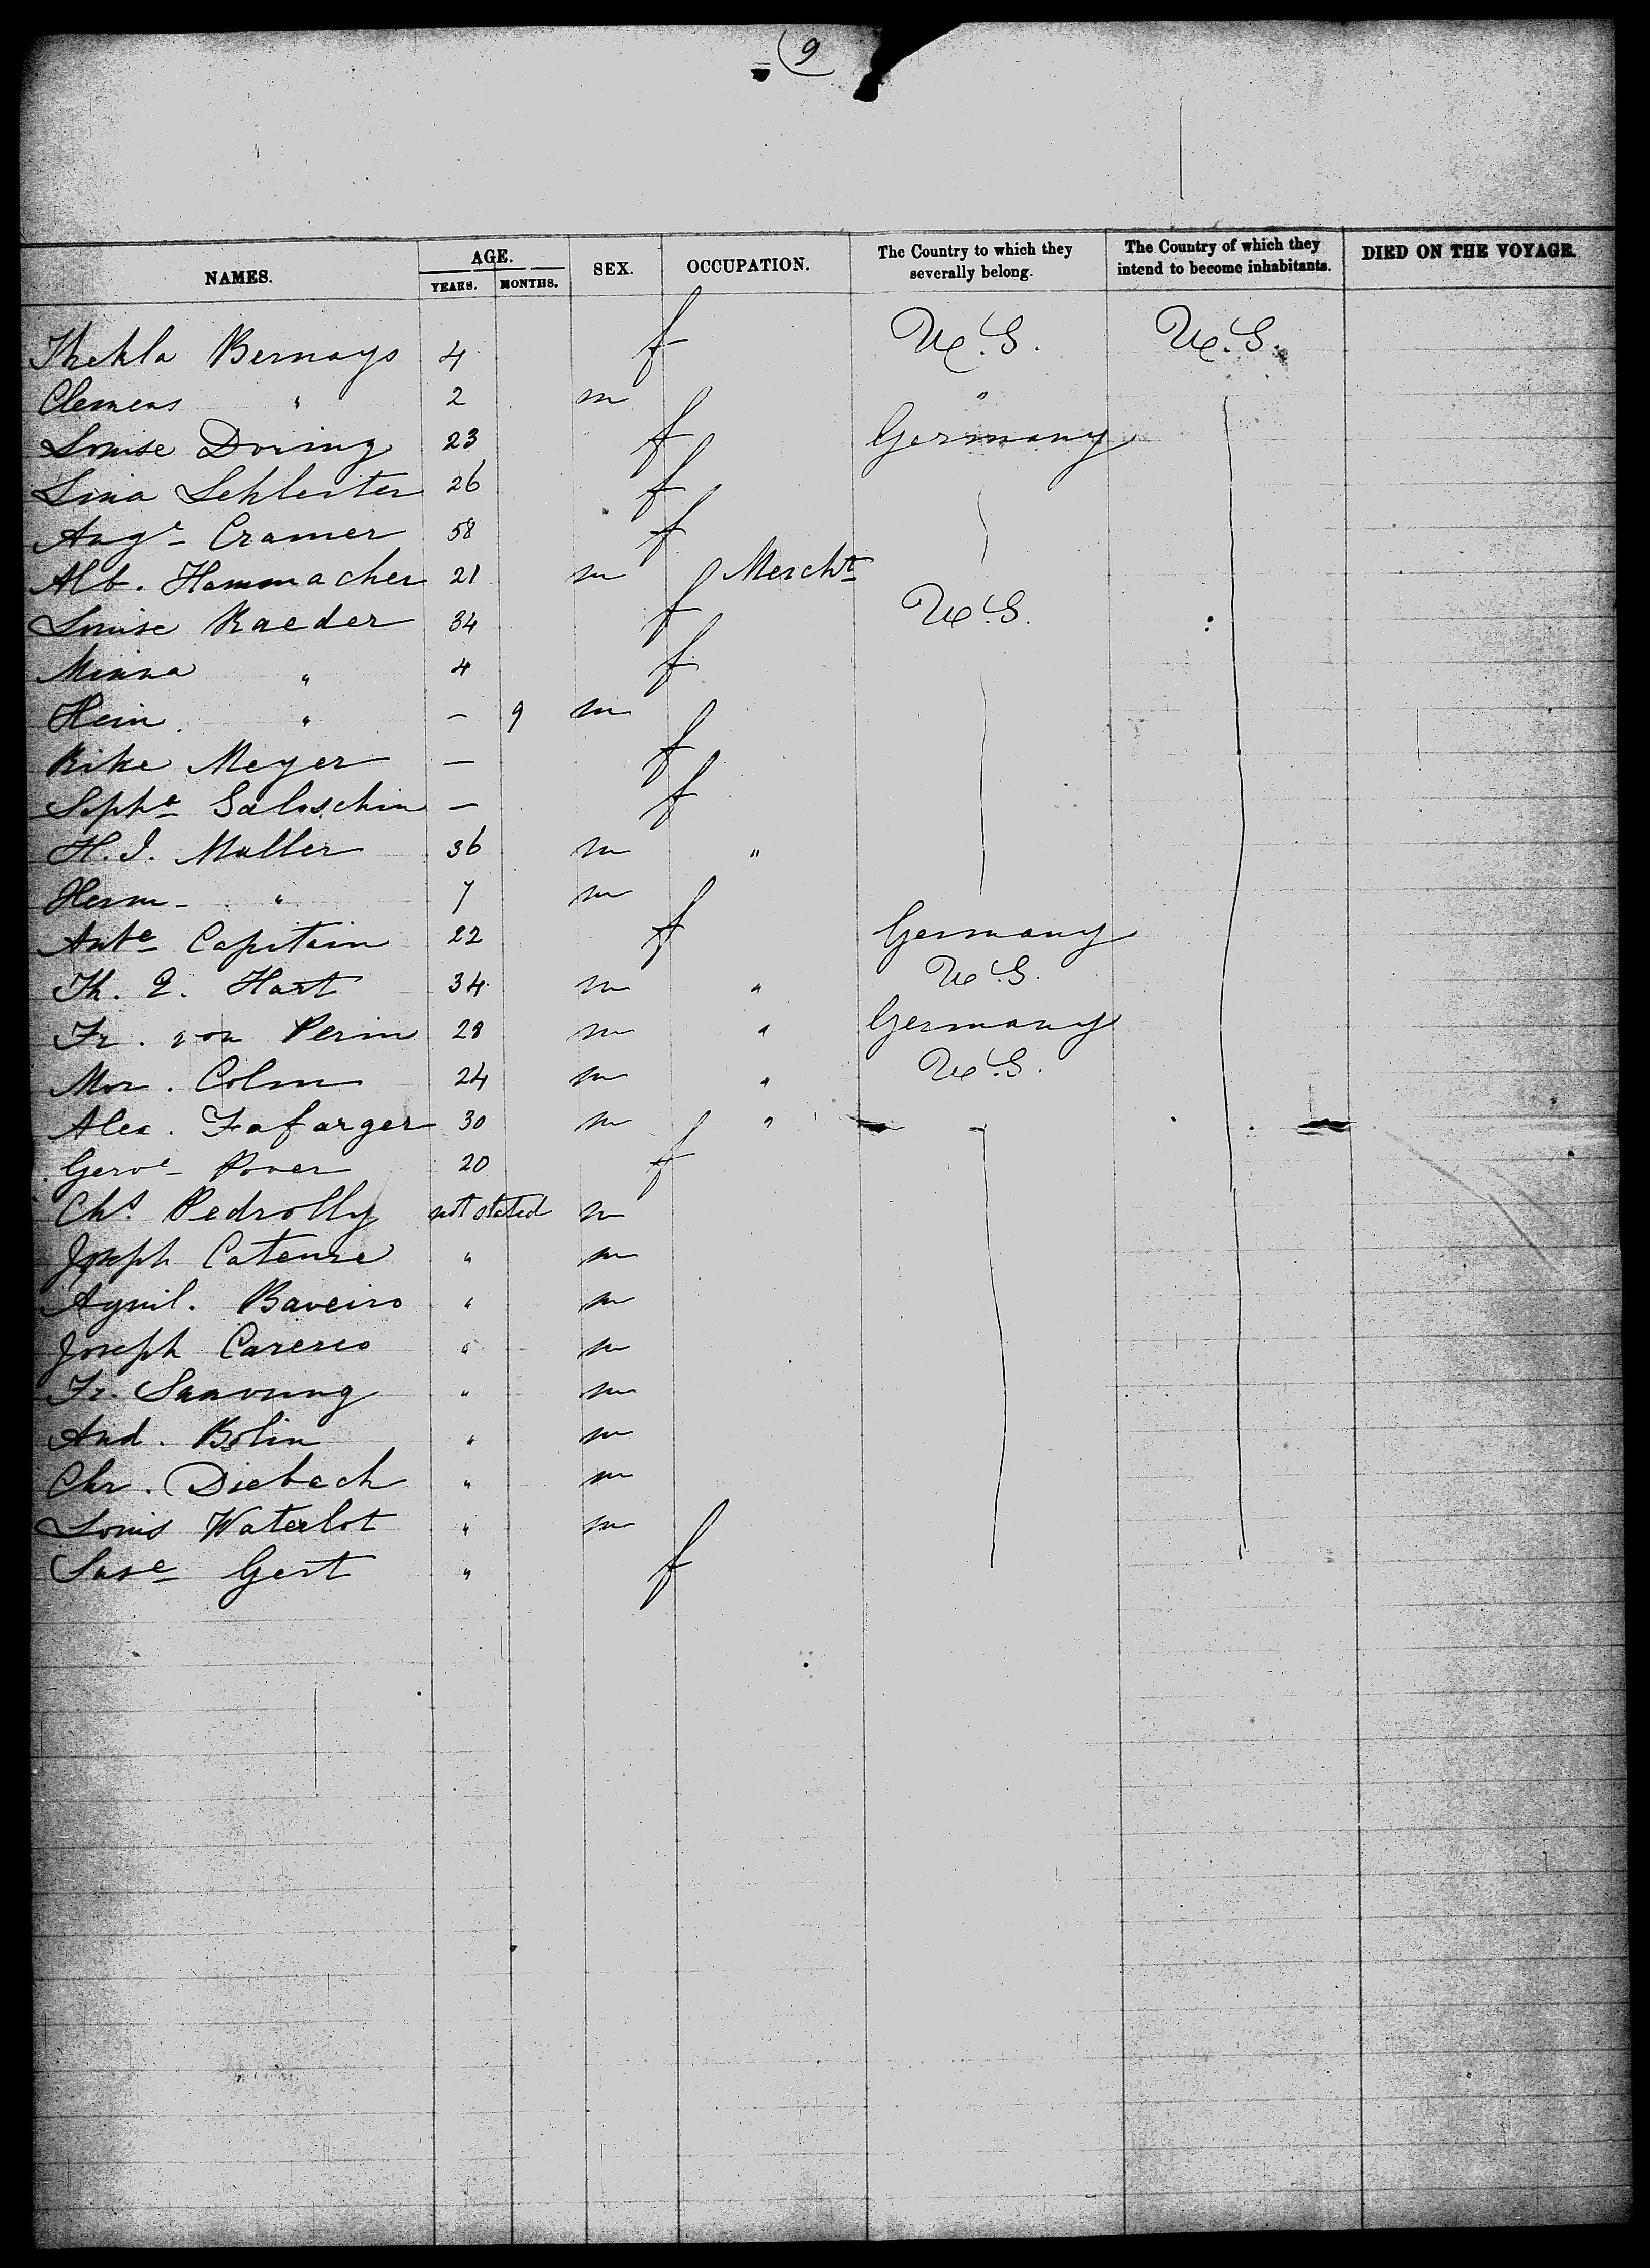 9
NAMES. AGE. YEARS. MONTHS. SEX. OCCUPATION. The Country to which they severally belong. The Country of which they intend to become inhabitants. DIED ON THE VOYAGE.
Thekla Bernays 4 f U.S. U.S.
Clemens " 2 m "
Louise Doring 23 f Germany
Lina Schleiter 26 f
Auge Cramer 58 f
Alb. Hammacher 21 m Mercht
Louise Raeder 34 f U.S.
Minna " 4 f
Hein. " — 9 m
Rike Meyer — f
Sopha Saloschin — f
H.J. Muller 36 m "
Herm. " 7 m
Ante Capitain 22 f Germany
Th. E. Hart 34 m " U.S.
Fr. von Perin 28 m " Germany
Mor. Colm 24 m " U.S.
Alex. Fafarger 30 m "
Gerve Pover 20 f
Chs. Pedrolly not stated m
Joseph Catenre " m
Aguil. Baveiro " m
Joseph Carereo " m
Fr. " m
And. Bolin " m
Chr. Diebach " m
Louis Waterlot " m
Suse Gert " f